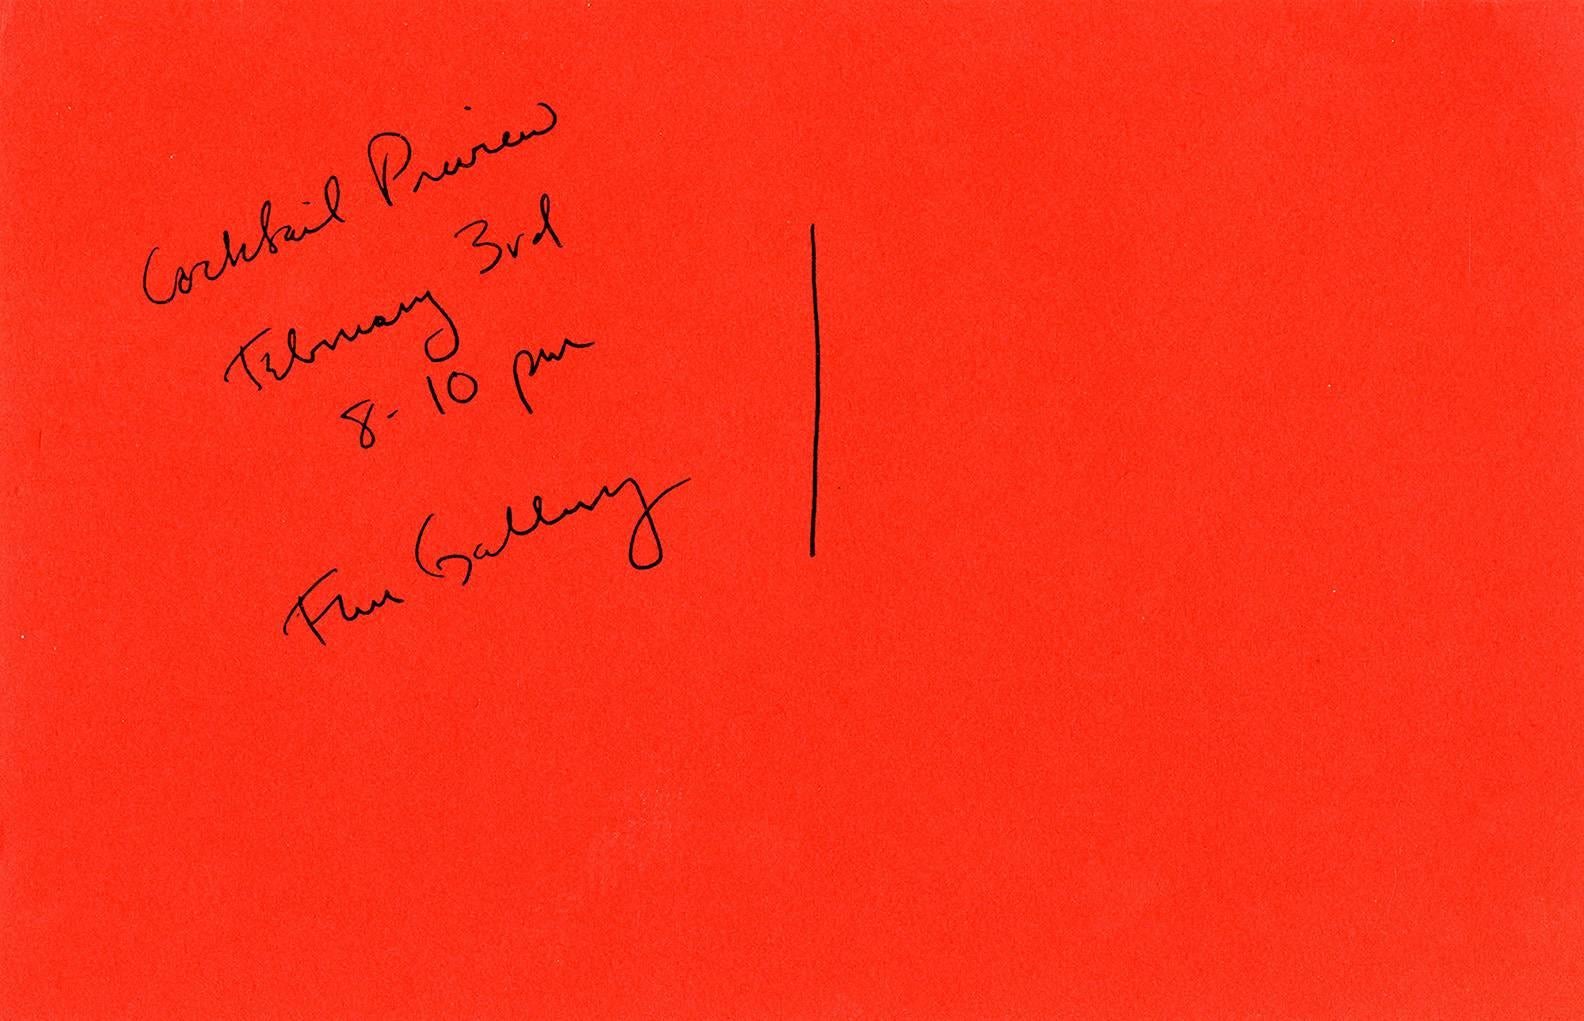 Cocktail Preview
February 3rd
8-10 pm
Fun Gallery